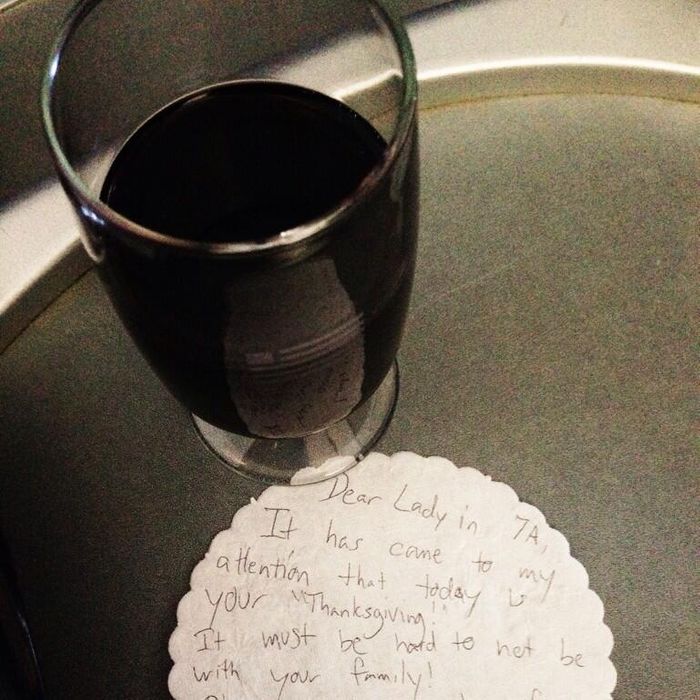 Dear Lady in 7A,
It has came to my
attention that today is
your "Thanksgiving!"
It must be hard to not be
with your family!